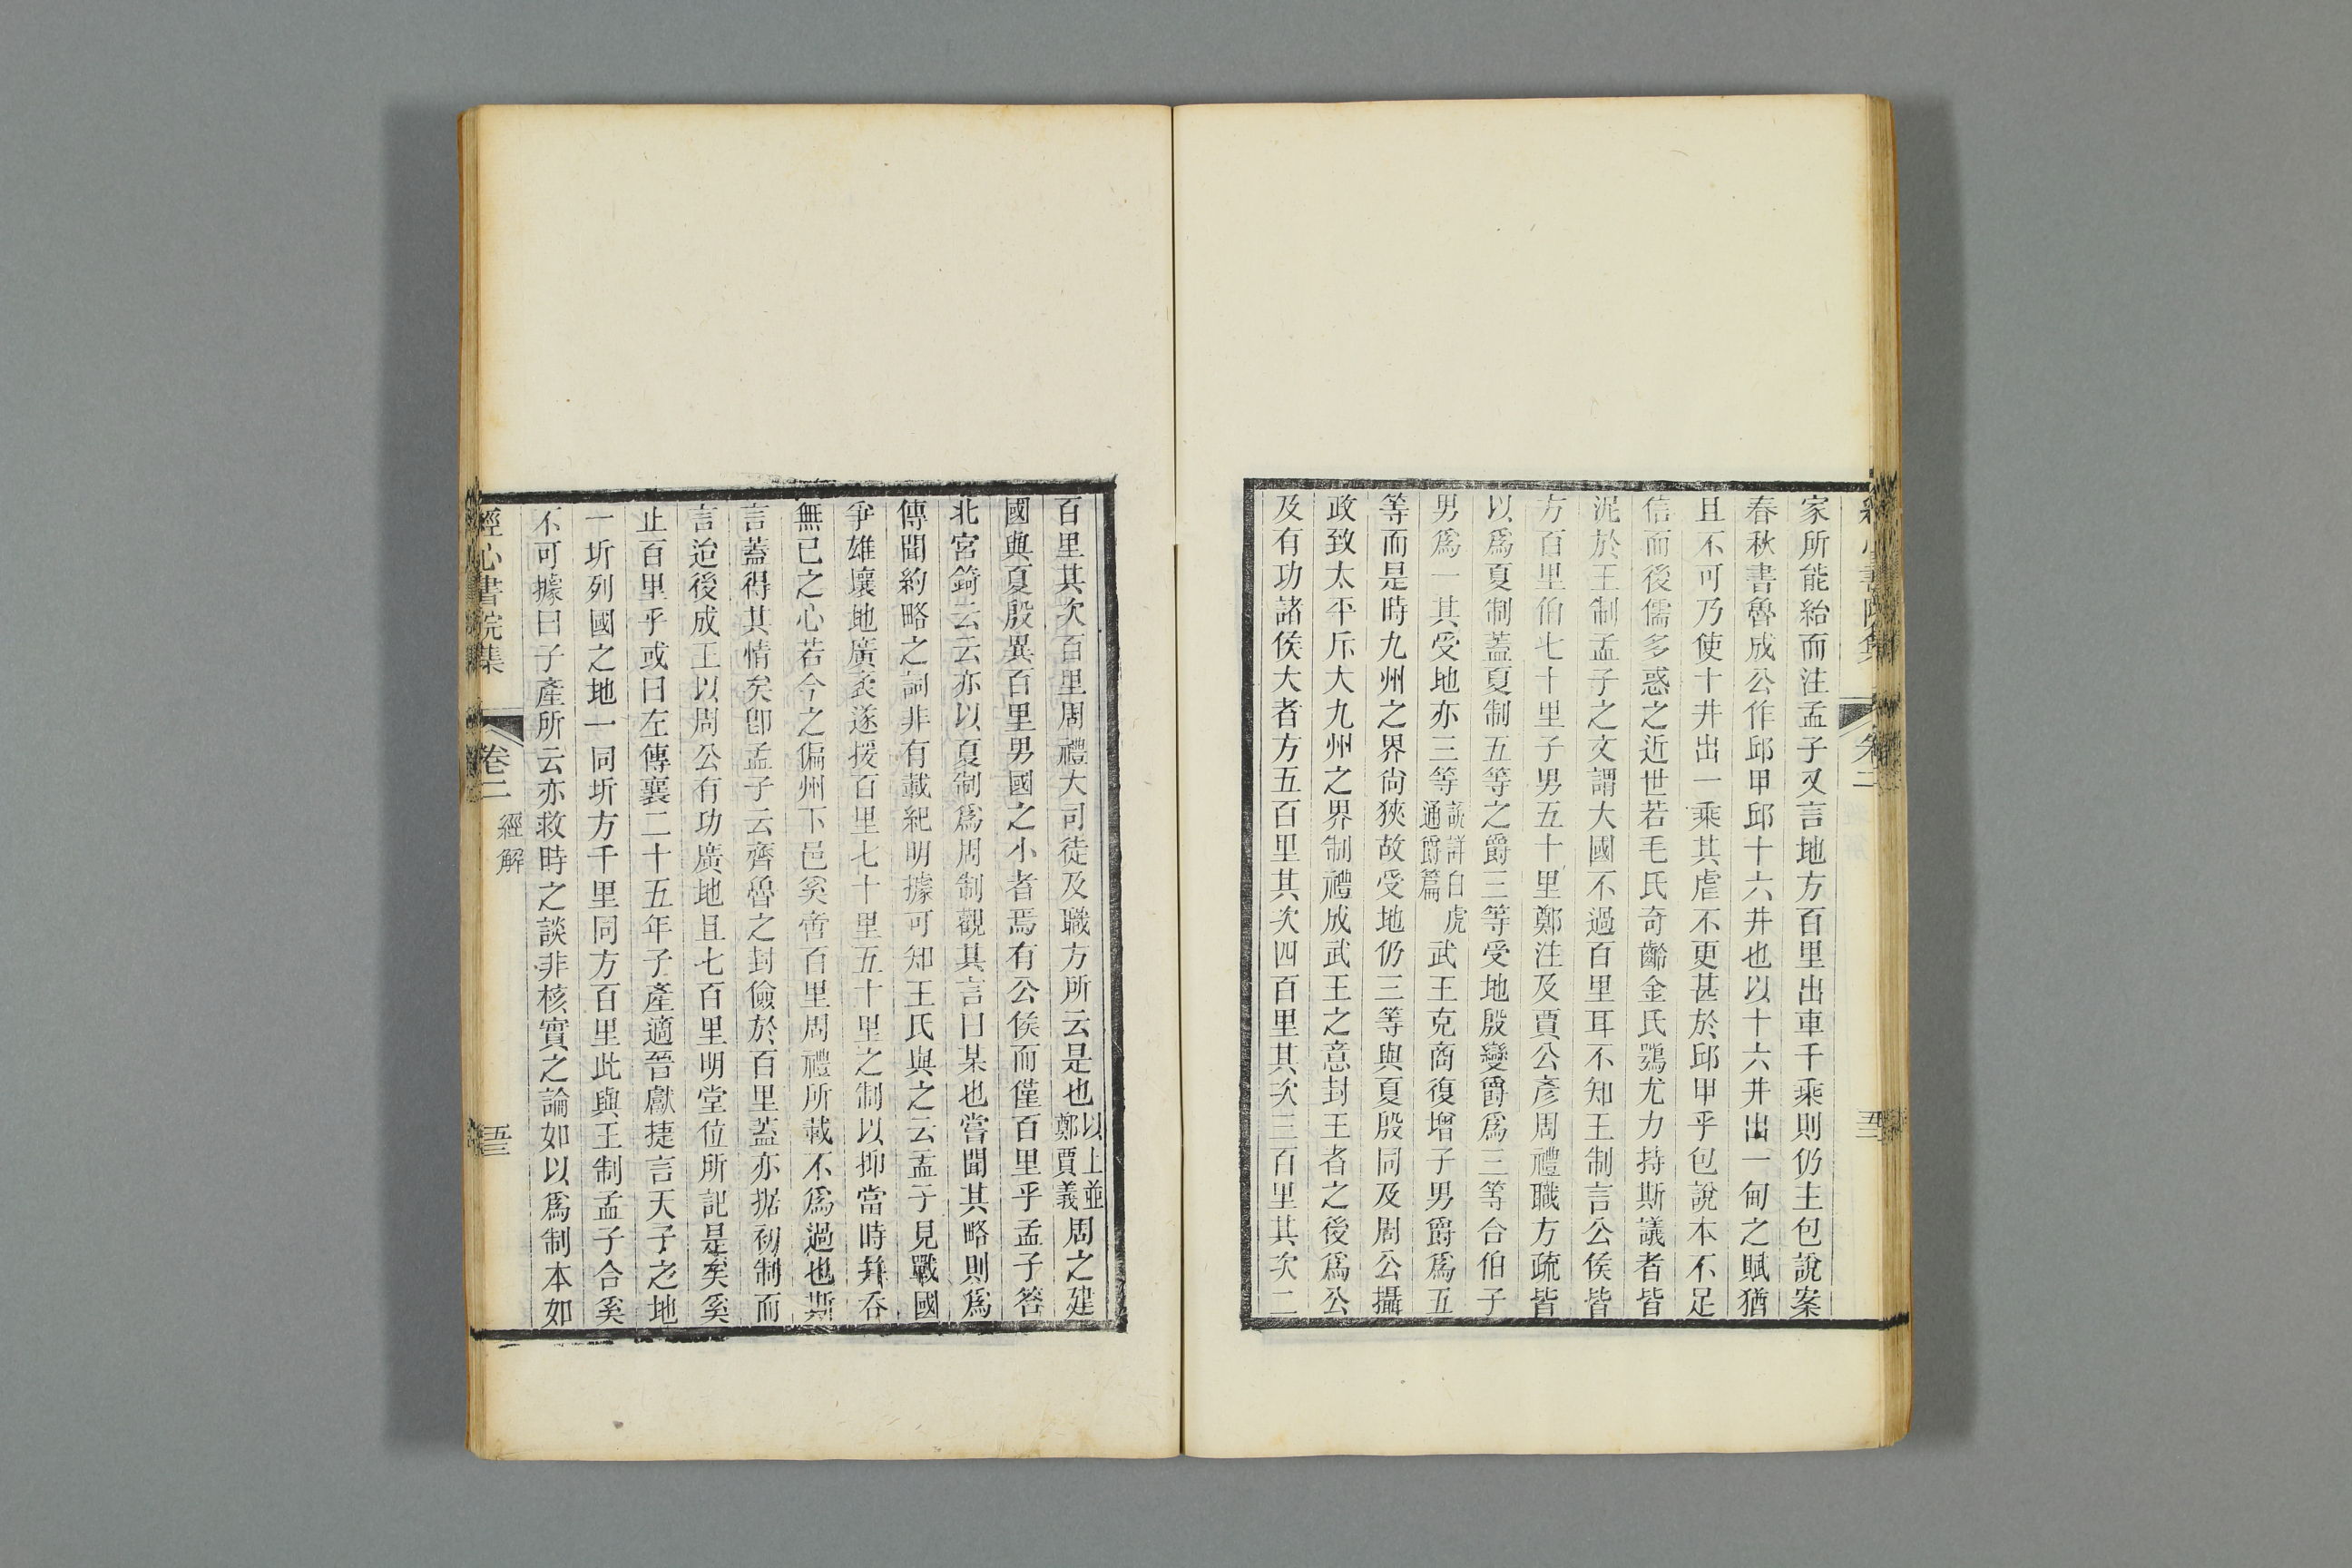 家所能紿而注孟子又言地方百里出車千乘則仍主包說案
春秋書魯成公作邱甲邱十六井也以十六井出一甸之賦猶
且不可乃使十井出一乘其虐不更甚於邱甲乎包說本不足
信而後儒多惑之近世若毛氏奇齡金氏鶚尤力持斯議者皆
泥於王制孟子之文謂大國不過百里耳不知王制言公侯皆
方百里伯七十里子男五十里鄭注及賈公彥周禮職方疏皆
以爲夏制蓋夏制五等之爵三等受地殷變爵爲三等合伯子
男爲一其受地亦三等說詳白虎通爵篇武王克商復增子男爵爲五
等而是時九州之界尙狹故受地仍三等與夏殷同及周公攝
政致太平斥大九州之界制禮成武王之意封王者之後爲公
及有功諸侯大者方五百里其次四百里其次三百里其次二
百里其次百里周禮大司徒及職方所云是也以上並鄭賈義周之建
國與夏殷異百里男國之小者焉有公侯而僅百里乎孟子答
北宮錡云云亦以夏制爲周制觀其言曰某也嘗聞其略則爲
傳聞約略之詞非有載紀明據可知王氏與之云孟子見戰國
爭雄壤地廣袤遂援百里七十里五十里之制以抑當時幷吞
無已之心若今之偏州下邑奚啻百里周禮所載不爲過也斯
言蓋得其情矣卽孟子云齊魯之封儉於百里蓋亦据初制而
言迨後成王以周公有功廣地且七百里明堂位所記是矣奚
止百里乎或曰左傳襄二十五年子產適晉獻捷言天子之地
一圻列國之地一同圻方千里同方百里此與王制孟子合奚
不可據曰子產所云亦救時之談非核實之論如以爲制本如
經心書院集
卷二
經解